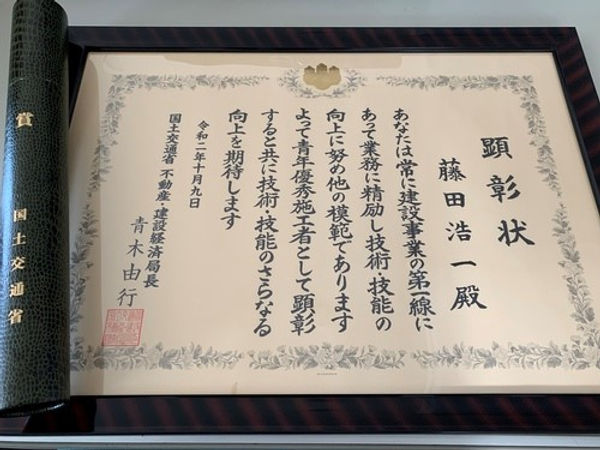 顕彰状
藤田浩一殿
あなたは常に建設事業の第一線に
あって業務に精励し技術・技能の
向上に努め他の模範であります
よって青年優秀施工者として顕彰
すると共に技術・技能のさらなる
向上を期待します
令和二年十月九日
国土交通省 不動産・建設経済局長
青木由行
賞
国土交通省